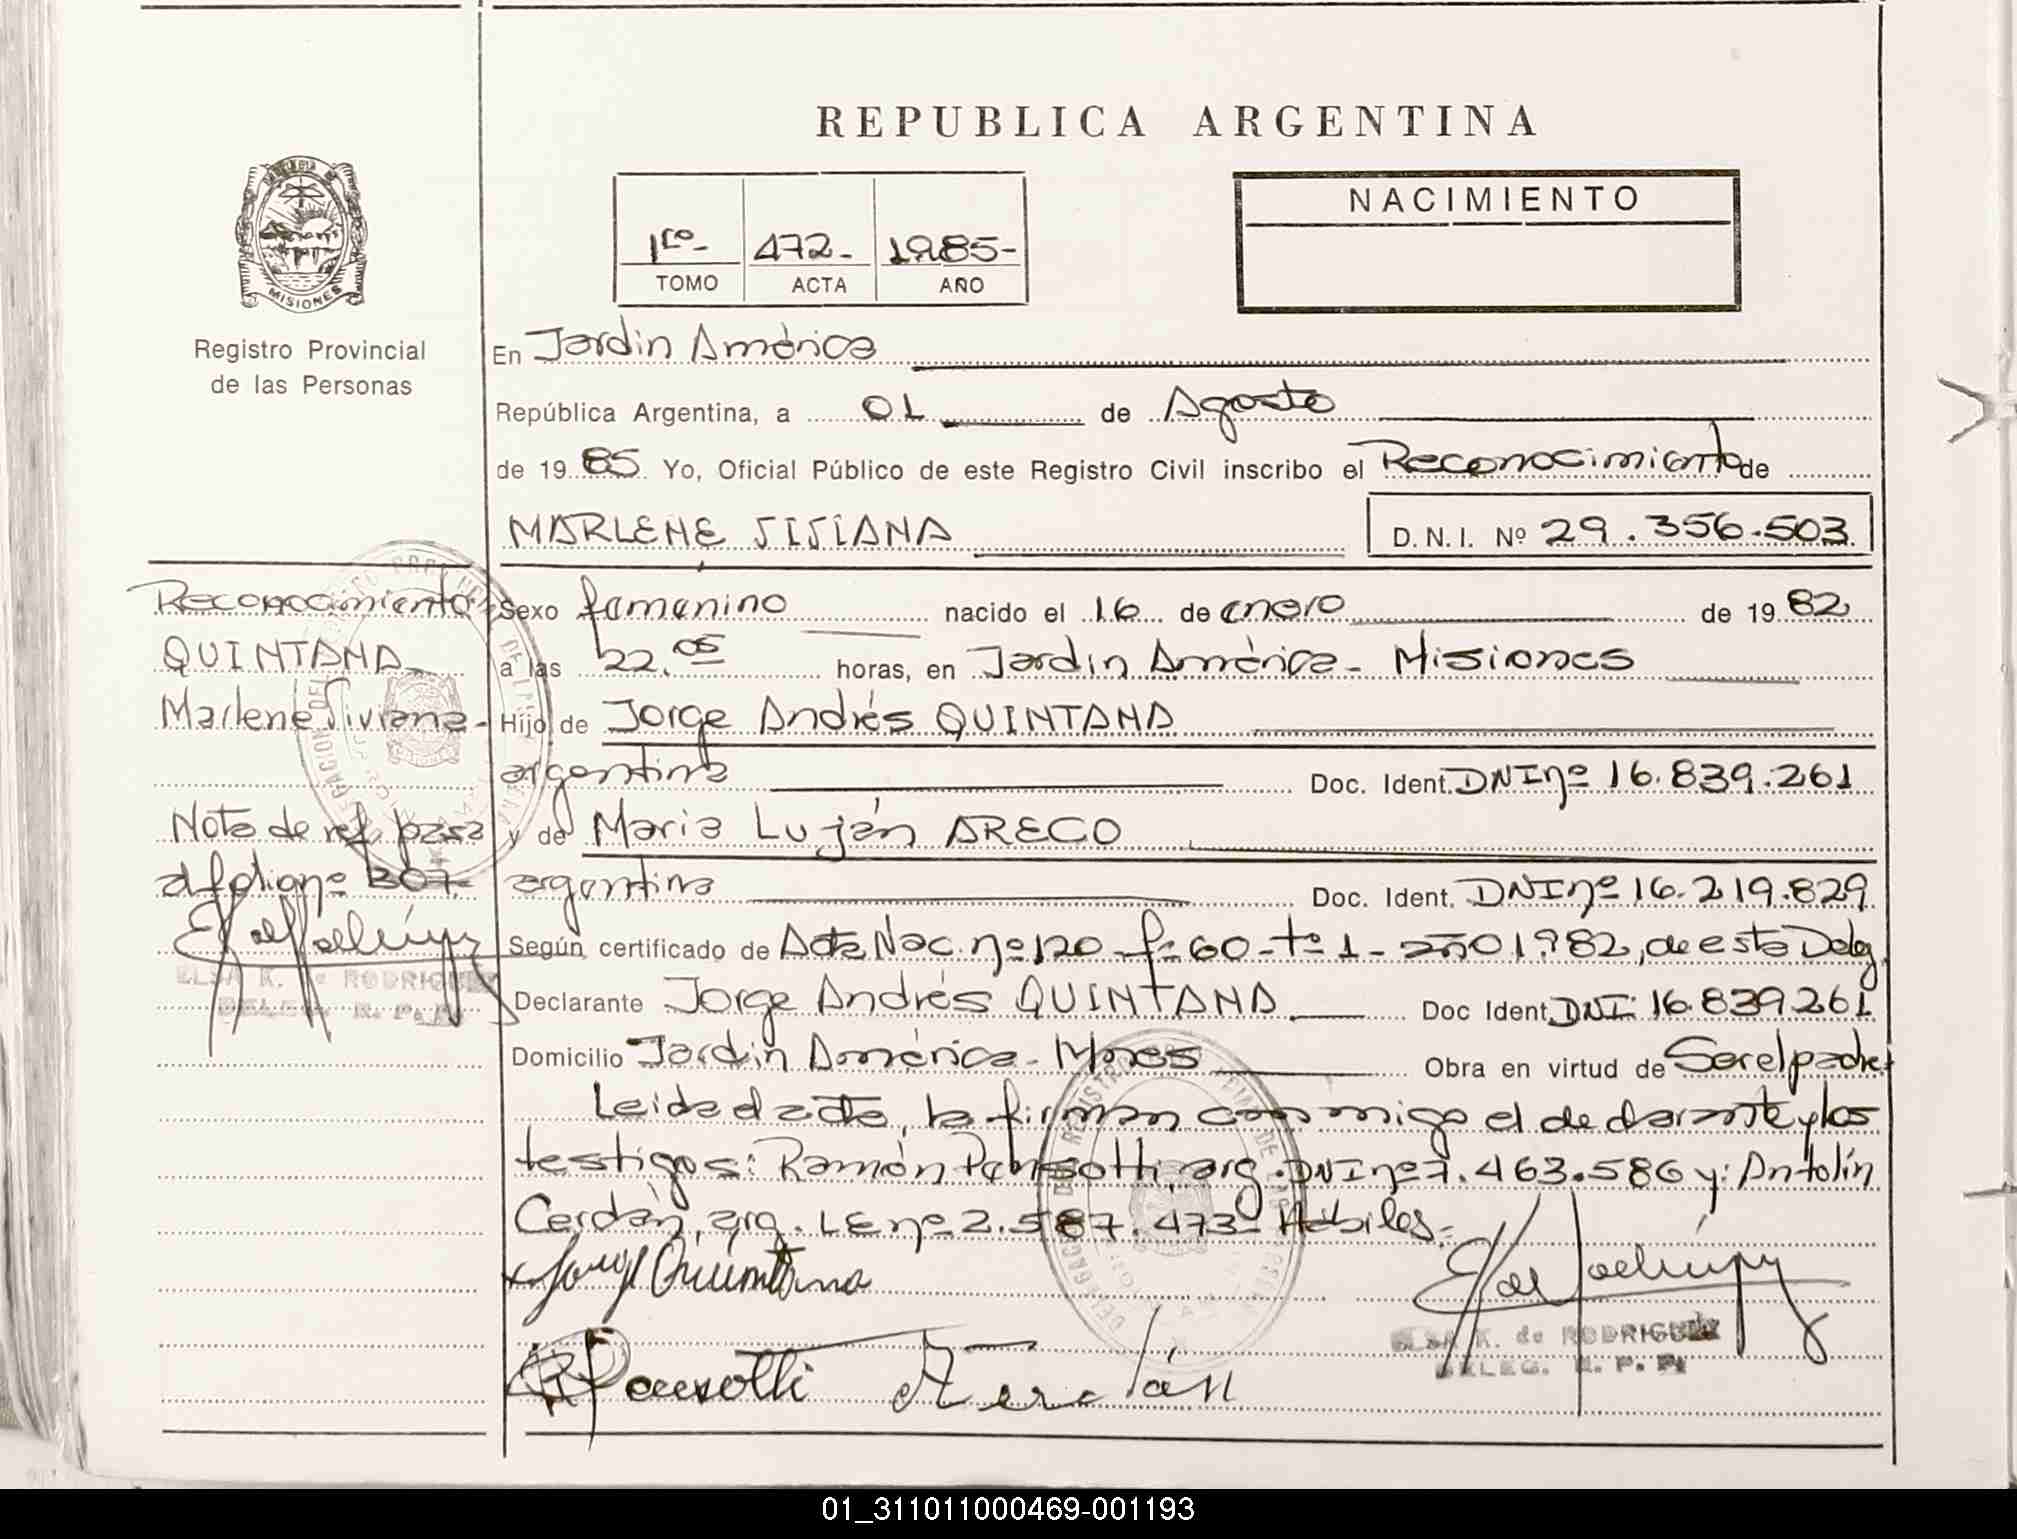 REPUBLICA ARGENTINA
NACIMIENTO
1ro- 472- 1985-
TOMO ACTA AÑO
MISIONES
Registro Provincial
de las Personas
En Jardin América
República Argentina, a 01 de Agosto
de 1985 Yo, Oficial Público de este Registro Civil inscribo el Reconocimiento de
MARLENE VIVIANA D.N.I. Nº 29.356.503
Reconocimiento
QUINTANA
Marlene Viviana-
Nota de ref. pasa
al folio nº 307-
ELSA K. de RODRIGUEZ
DELEG. R. P. P.
Sexo femenino nacido el 16 de enero de 1982
a las 22.05 horas, en Jardin América- Misiones
Hijo de Jorge Andrés QUINTANA
argentina Doc. Ident. DNI nº 16.839.261
y de Maria Luján ARECO
argentina Doc. Ident. DNI nº 16.219.829
Según certificado de Acta Nac. nº 120- fº 60- tº 1- año 1982, de esta Deleg.
Declarante Jorge Andrés QUINTANA Doc Ident. DNI: 16.839.261
Domicilio Jardin América- Mnes Obra en virtud de Ser el padre.
Leida el acta, la firman conmigo el declarante y los
testigos: Ramón Pansotti, arg. DNI nº 7.463.586 y: Antolín
Cerdán, arg. LE nº 2.587.473- Hábiles.-
x Jorge Quintana
Pansotti
ELSA K. de RODRIGUEZ
DELEG. R. P. P.
01_311011000469-001193